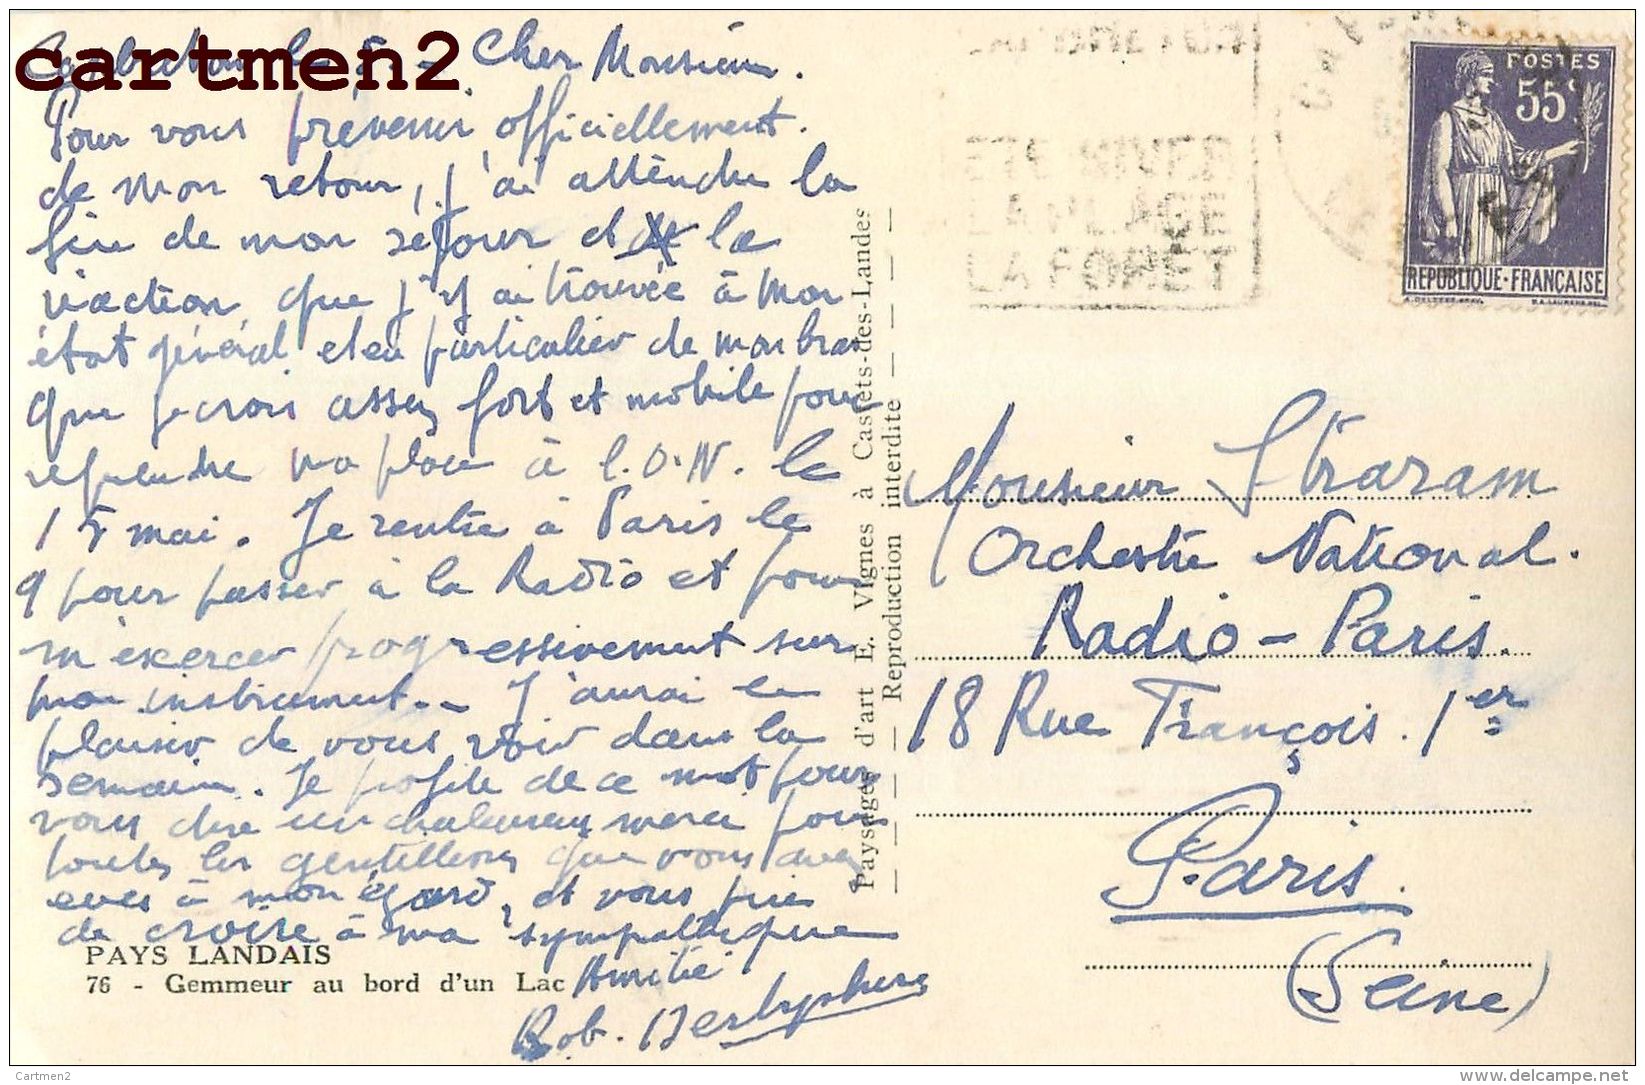 cartmen2
Cher Monsieur.
Pour vous prévenir officiellement.
de mon retour, j'ai attendu la
fin de mon séjour et la
réaction que j'y ai trouvée à mon
état général et en particulier de mon bras
que je crois assez fort et mobile pour
reprendre ma place à l'O.N. le
15 mai. Je rentre à Paris le
9 pour passer à la Radio et pour
m'exercer progressivement sur
mon instrument.- J'aurai le
plaisir de vous voir dans la
semaine. Je profite de ce mot pour
vous dire un chaleureux merci pour
toutes les gentillesses que vous avez
eues à mon égard, et vous prie
de croire à ma sympathique
Amitié
Rob.
PAYS LANDAIS
76 - Gemmeur au bord d'un Lac
Paysages d'art E. Vignes à Castets-des-Landes
Reproduction interdite
ETE HIVER
LA PLAGE
LA FORET
POSTES
55c
REPUBLIQUE-FRANÇAISE
Monsieur Straram
Orchestre National.
Radio-Paris.
18 Rue François. 1er
Paris.
(Seine)
Cartmen2
www.delcampe.net